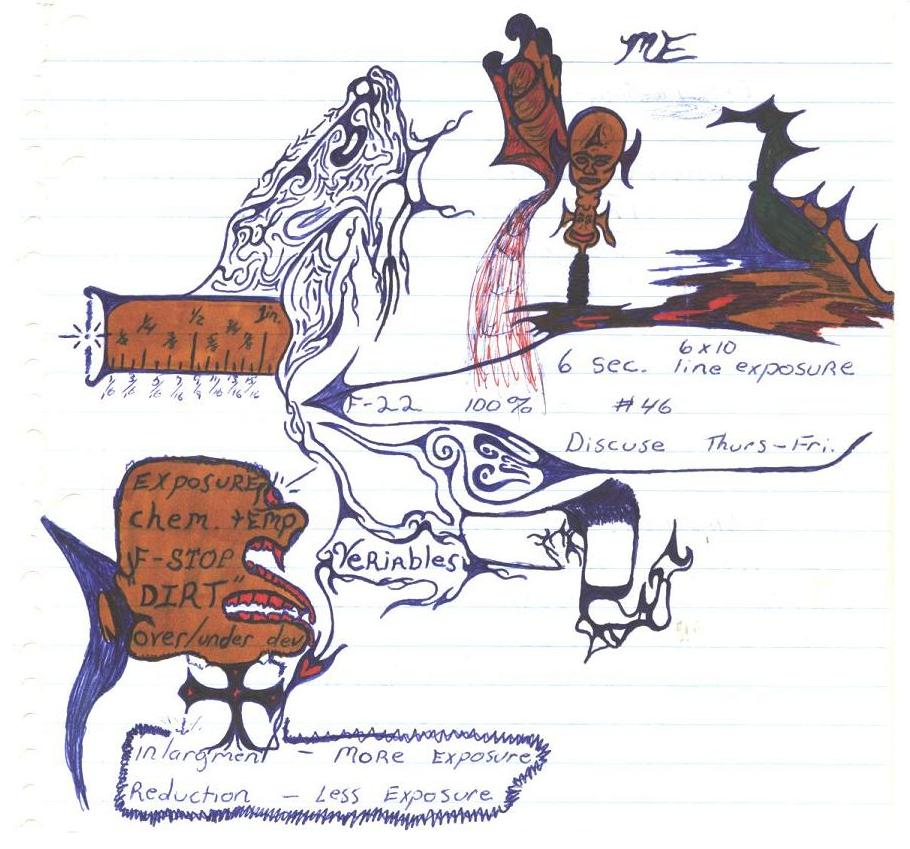 ME
1/8 1/4 3/8 1/2 5/8 3/4 7/8 1in.
1/16 3/16 5/16 7/16 9/16 11/16 13/16 15/16
6 sec. 6x10 line exposure
F-22 100% #46
Discuse Thurs-Fri.
EXPOSURE
chem. tEMP
F-STOP
"DIRT"
over/under dev
VeRiAbles
Inlargment - MoRe Exposure
Reduction - Less Exposure